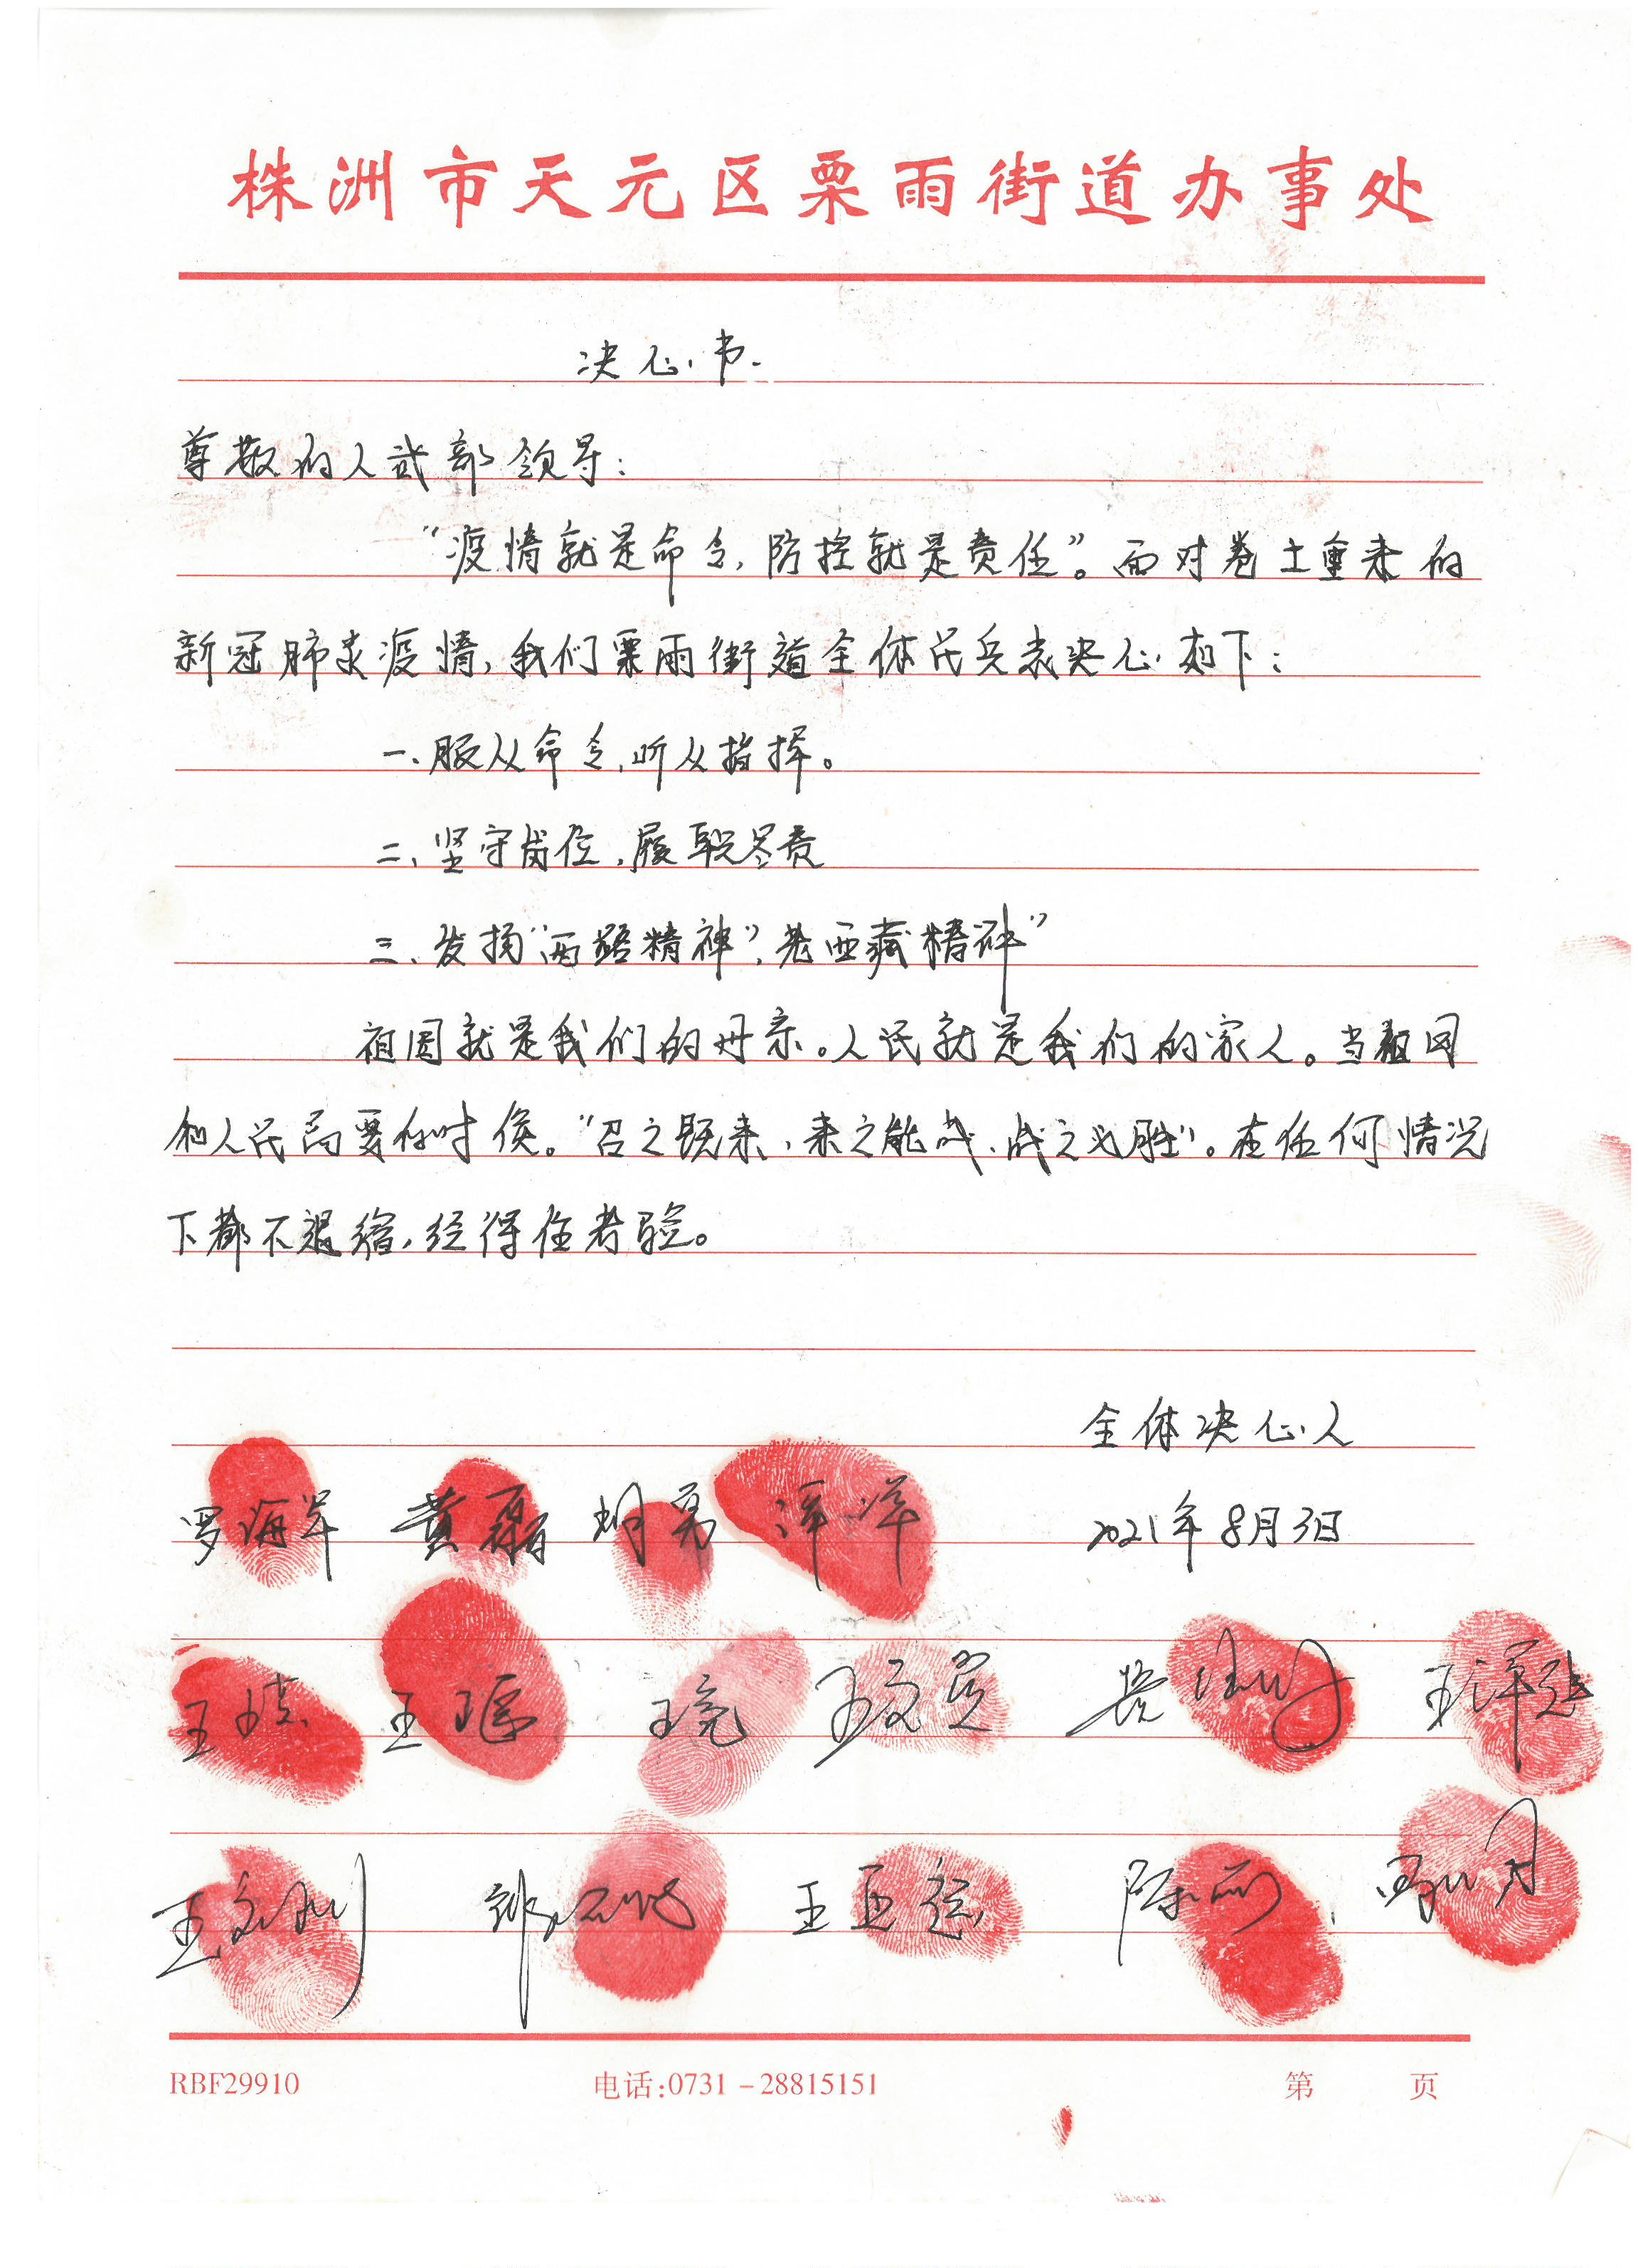 株洲市天元区栗雨街道办事处
决心书.
尊敬的人武部领导：
“疫情就是命令，防控就是责任”。面对卷土重来的
新冠肺炎疫情，我们栗雨街道全体民兵表决心如下：
一、服从命令，听从指挥。
二、坚守岗位，履职尽责
三、发扬“两路精神”，老西藏精神”
祖国就是我们的母亲。人民就是我们的家人。当祖国
和人民需要的时侯。“召之既来，来之能战、战之必胜”。在任何情况
下都不退缩，经得住考验。
全体决心人
罗海军 黄磊 洋洋 2021年8月3日
王瑶 王亮
王亚运 陈丽
RBF29910 电话:0731-28815151 第 页